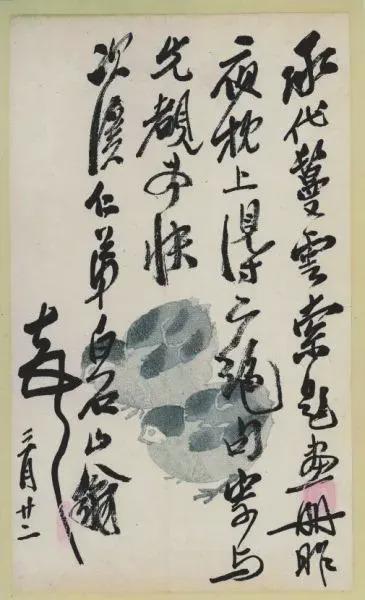 承代雲索題畫冊昨
夜枕上得二絕句寄与
先覩為快
次溪仁弟白石山翁
三月廿二